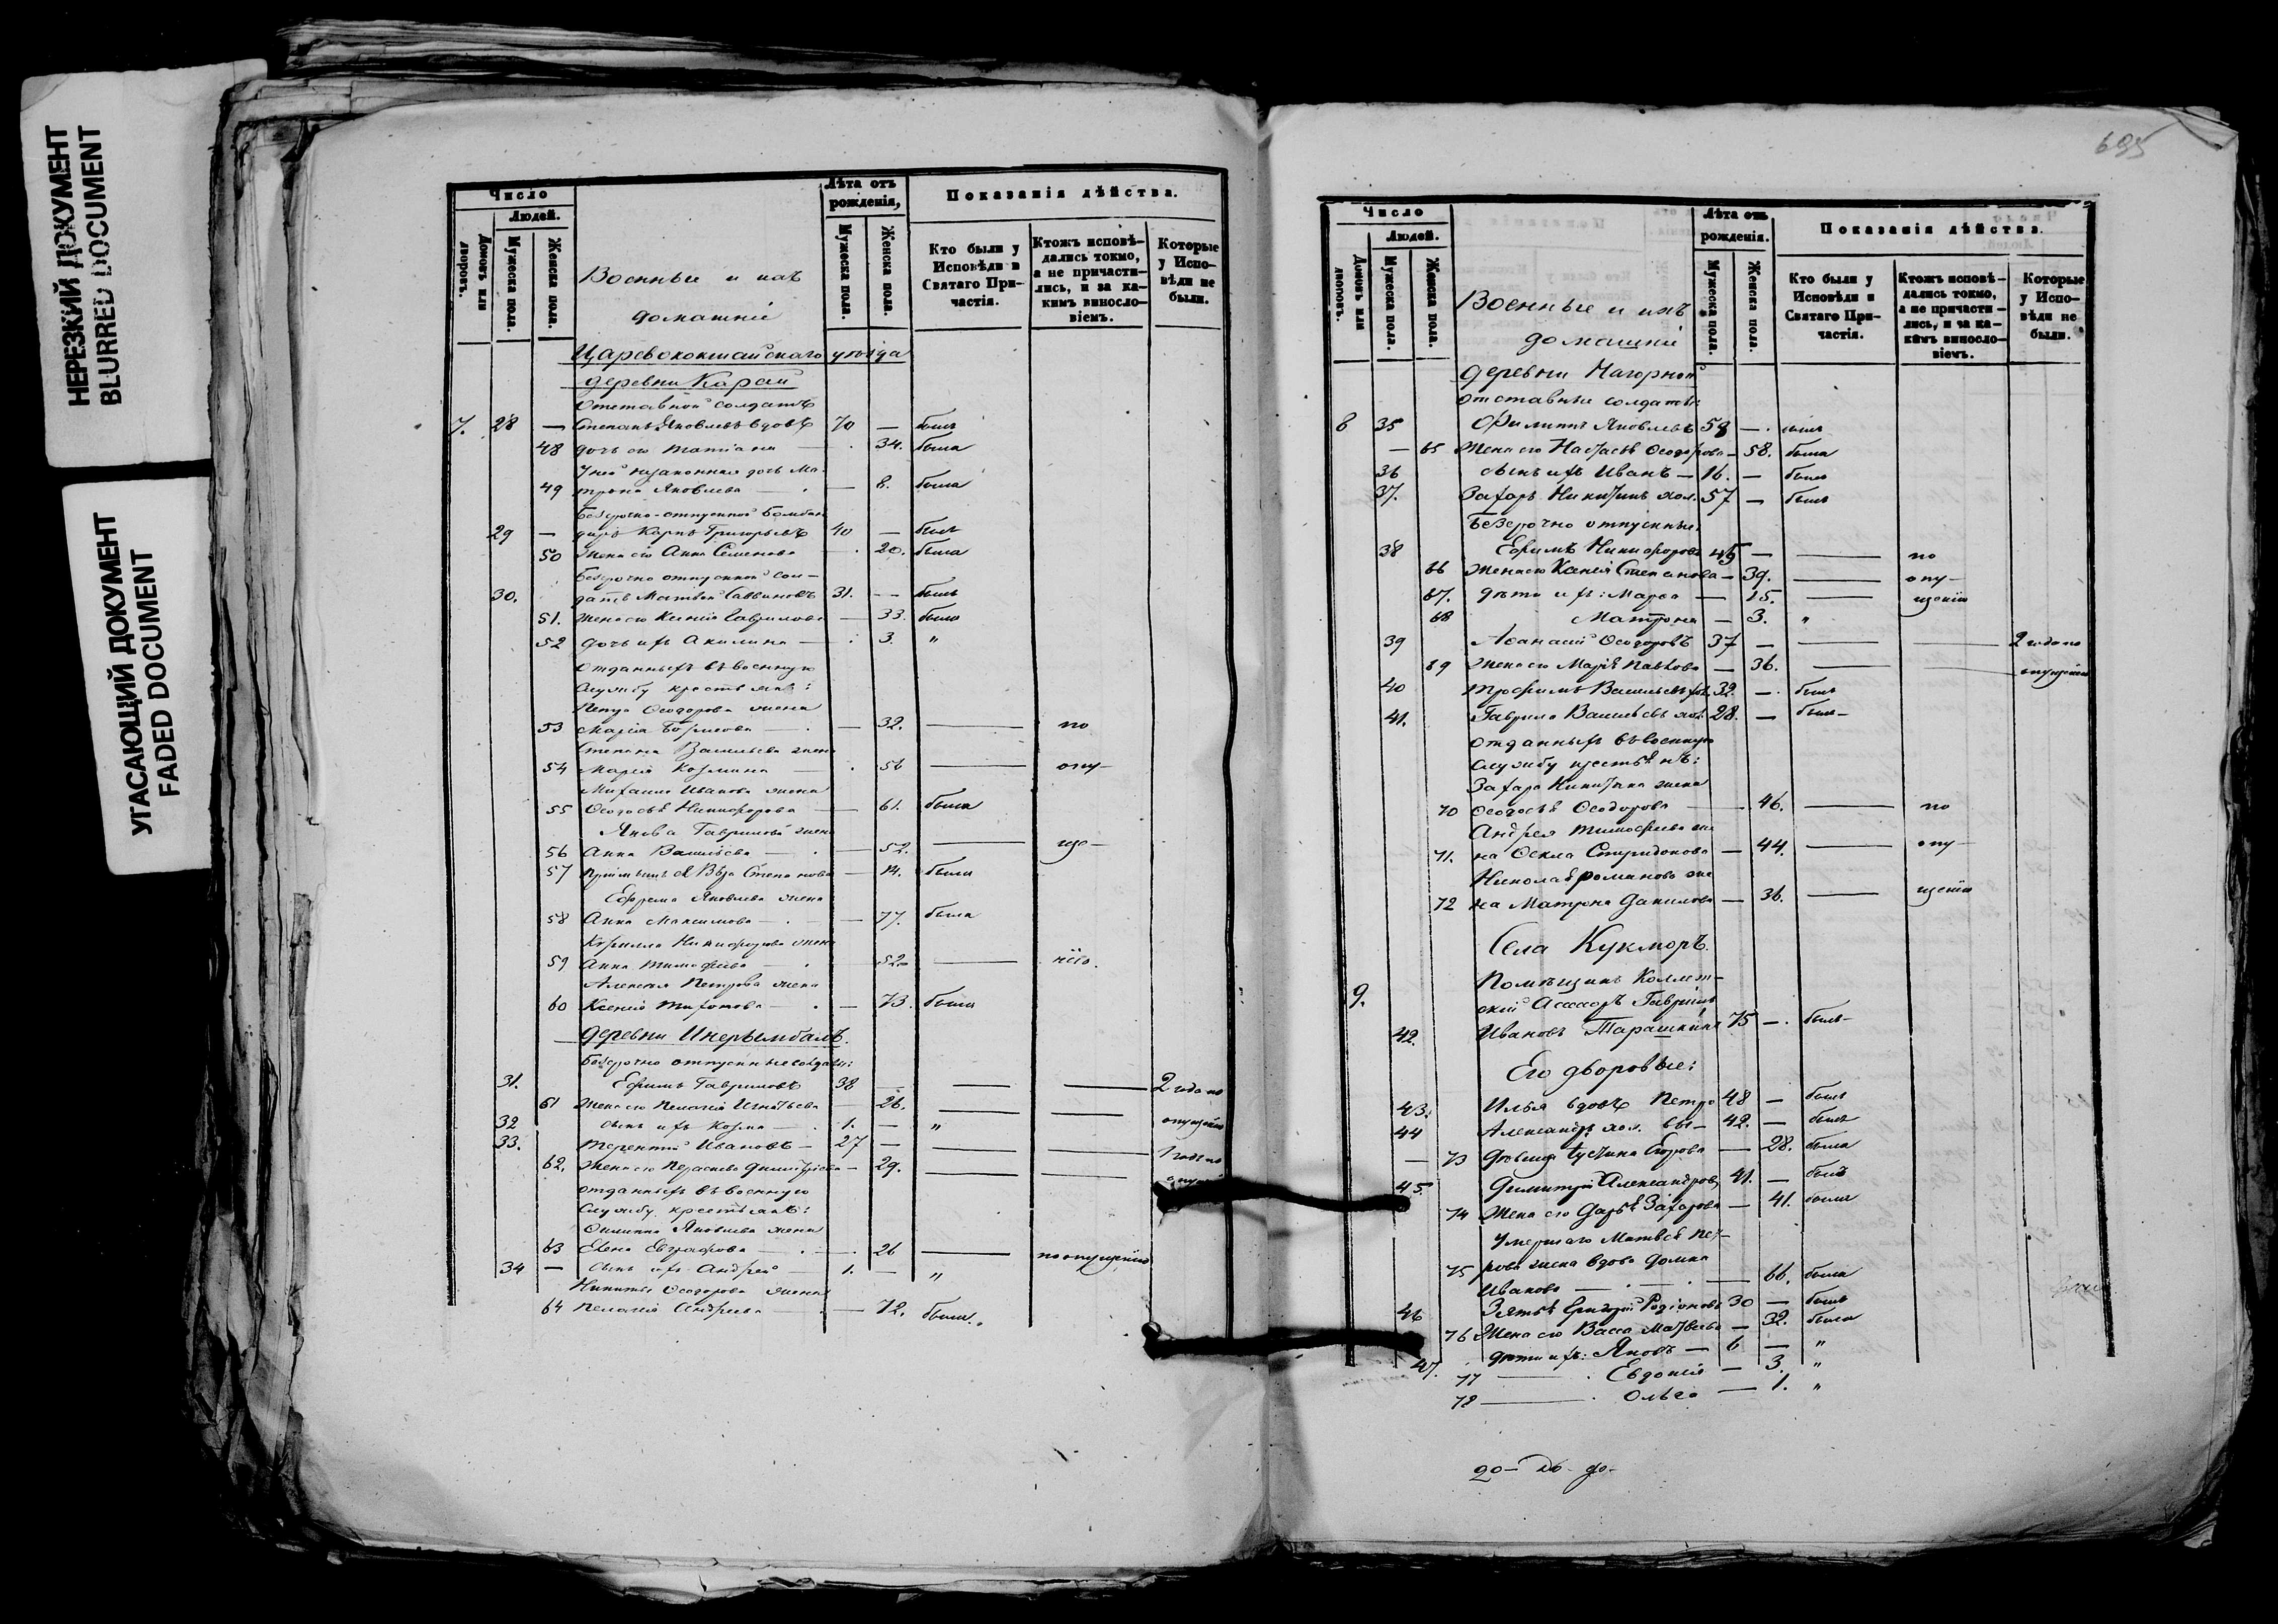 НЕРЕЗКИЙ ДОКУМЕНТ
BLURRED DOCUMENT
УГАСАЮЩИЙ ДОКУМЕНТ
FADED DOCUMENT
Число
Людей.
Домовъ или дворовъ.
Мужеска пола.
Женска пола.
Военные и ихъ
домашніе
Лѣта отъ рожденія,
Мужеска пола.
Женска пола.
Показанія дѣйства.
Кто были у Исповѣди и Святаго Причастія.
Ктожъ исповѣдались токмо, а не причастились, и за какимъ винословіемъ.
Которые у Исповѣди не были.
Царевококшайскаго уѣзда
деревни Карай
Отставной солдатъ
7. 28 — Степанъ Яковлевъ вдовъ 70 — былъ
48 дочь его Татіана — 34. была
У ней незаконная дочь Ма-
49 трона Яковлева — — 8. была
Безсрочно-отпускной Бомбан
29 — диръ Карпъ Григорьевъ 40 — былъ
50 жена его Анна Семенова — 20. была
Безсрочно отпускной сол-
30. датъ Матвей Саввиновъ 31. — былъ
51. жена его Ксенія Гаврилова — 33. была
52 дочь ихъ Акилина — 3. "
Отданныхъ въ военную
службу крестьянъ:
Петра Ѳеодорова жена
53 Марія Борисова — — 32. — по
Степана Васильева жена
54 Марія Козмина — 56 — опу-
Михаила Иванова жена
55 Ѳеодосья Никифорова — 61. была
Якова Гаврилова жена
56 Анна Васильева — — 52. — ще-
57 Пріемышъ ея Вѣра Степанова — 14. была
Ефрема Яковлева жена
58 Анна Максимова — — 77. была
Кирилла Никифорова жена
59 Анна Тимофеева — 52. — нію.
Алексѣя Петрова жена
60 Ксенія Трифонова — — 73. была
деревни
Безсрочно отпускные солдаты:
31. Ефимъ Гавриловъ 38 — — — 2 года по
61 жена его Пелагія Игнатьева — 26. — —
32 сынъ ихъ Козма — 1. — " опущенію
33. Терентій Ивановъ — 27 — — — 1 годъ по
62. жена его Параскева Димитріева — 29. — —
отданныхъ въ военную
службу крестьянъ:
Филиппа Яковлева жена
63 Елена Евграфова — — 26 — по опущенію
34 — сынъ ихъ Андрей — 1. — "
Никиты Ѳеодорова жена
64 Пелагія Андреева — — 72. была.
695
Число
Людей.
Домовъ или дворовъ.
Мужеска пола.
Женска пола.
Военные и ихъ
домашніе
Лѣта отъ рожденія.
Мужеска пола.
Женска пола.
Показанія дѣйства.
Кто были у Исповѣди и Святаго Причастія.
Ктожъ исповѣдались токмо, а не причастились, и за какимъ винословіемъ.
Которые у Исповѣди не были.
деревни Нагорной
отставные солдаты:
8 35 Филиппъ Яковлевъ 59 — былъ
— 65 Жена его Настасья Ѳеодорова — 58. была
36 сынъ ихъ Иванъ — 16. — былъ
37. Захаръ Никитинъ хол. 57 — былъ
Безсрочно отпускные:
38 Ефимъ Никифоровъ 45 — — по
66 Жена его Ксенія Степанова — 39. — опу-
67. дѣти ихъ: Марѳа — 15. — щенію
68 Матрона — 3. "
39 Аѳанасій Ѳеодоровъ 37 — — — 2 года по
69 Жена его Марія Павлова — 36. — опущенію
40 Трофимъ Васильевъ хол. 32. — былъ
41. Гаврило Васильевъ хол. 28. — былъ
отданныхъ въ военную
службу крестьянъ:
Захара Никитина жена
70 Ѳеодосья Ѳеодорова — 46. — по
Андрея Тимофеева же
71. на Ѳекла Спиридонова — 44. — опу-
Николая Романова же
72 на Матрона Данилова — 36. — щенію
Села Кукморъ.
9. Помѣщикъ Коллеж-
скій Ассесоръ Гавріилъ
42. Ивановъ 75 — былъ
Его дворовые:
43. Илья вдовъ Петро 48 — былъ
44 Александръ хол. вы — 42. — былъ
— 73 Дѣвица Устина Егорова — 28. была
45. Димитрій Александровъ 41. — былъ
74 Жена его Дарья Захарова — 41. была
Умершаго Матвѣя Пет-
75 рова жена вдова Домна
Иванова — — 66. была
46 Зять ея Григорій Родіоновъ 30 — былъ
76 Жена его Васса Матвеева — 32. была
47. дѣти ихъ: Яковъ — 6 — "
77 — Евдокія — 3. "
78 — Ольга — 1. "